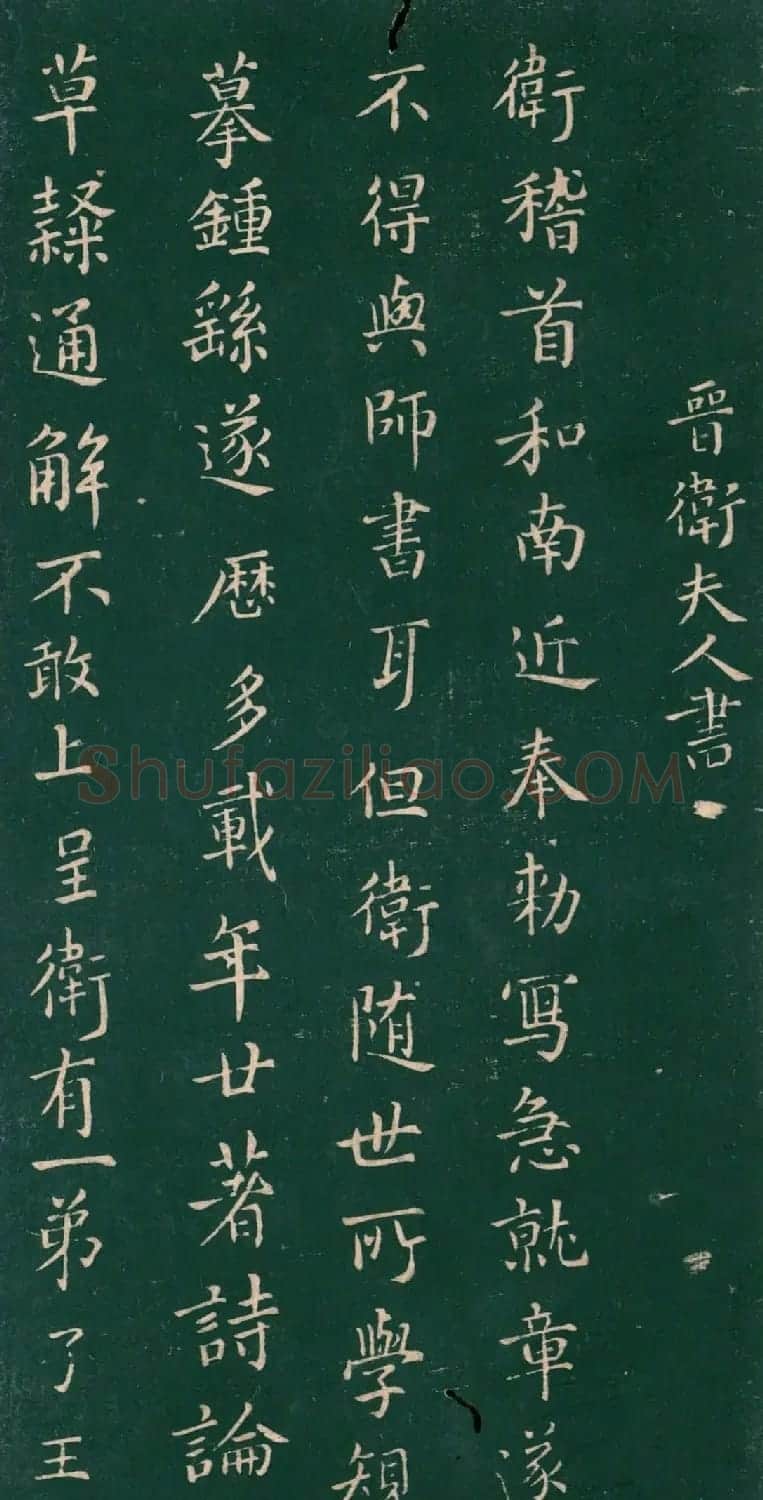 晉衛夫人書
衛稽首和南近奉勅寫急就章遂
不得與師書耳但衛随世所學規
摹鍾繇遂歷多載年廿著詩論
草隸通解不敢上呈衛有一弟了王
Shufaziliao.COM